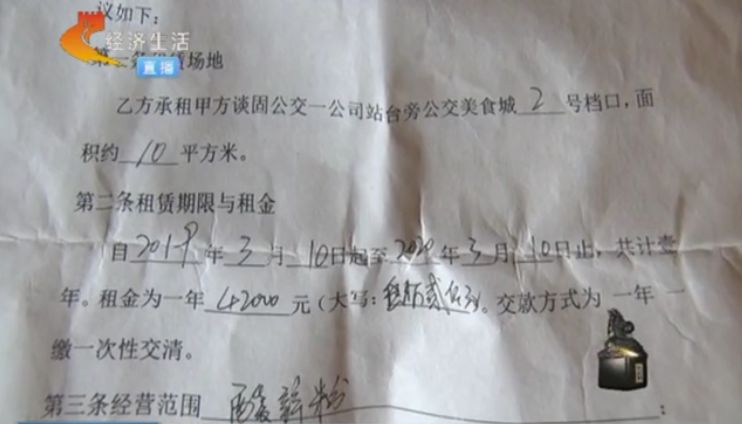 议如下：
经济生活
直播
第一条租赁场地
乙方承租甲方谈固公交一公司站台旁公交美食城 2 号档口，面
积约 10 平方米。
第二条租赁期限与租金
自 2019 年 3 月 10 日起至 2020 年 3 月 10 日止，共计壹
年。租金为一年 42000 元（大写：肆万贰仟元。交款方式为 一年 一
缴一次性交清。
第三条经营范围 酸辣粉 ；